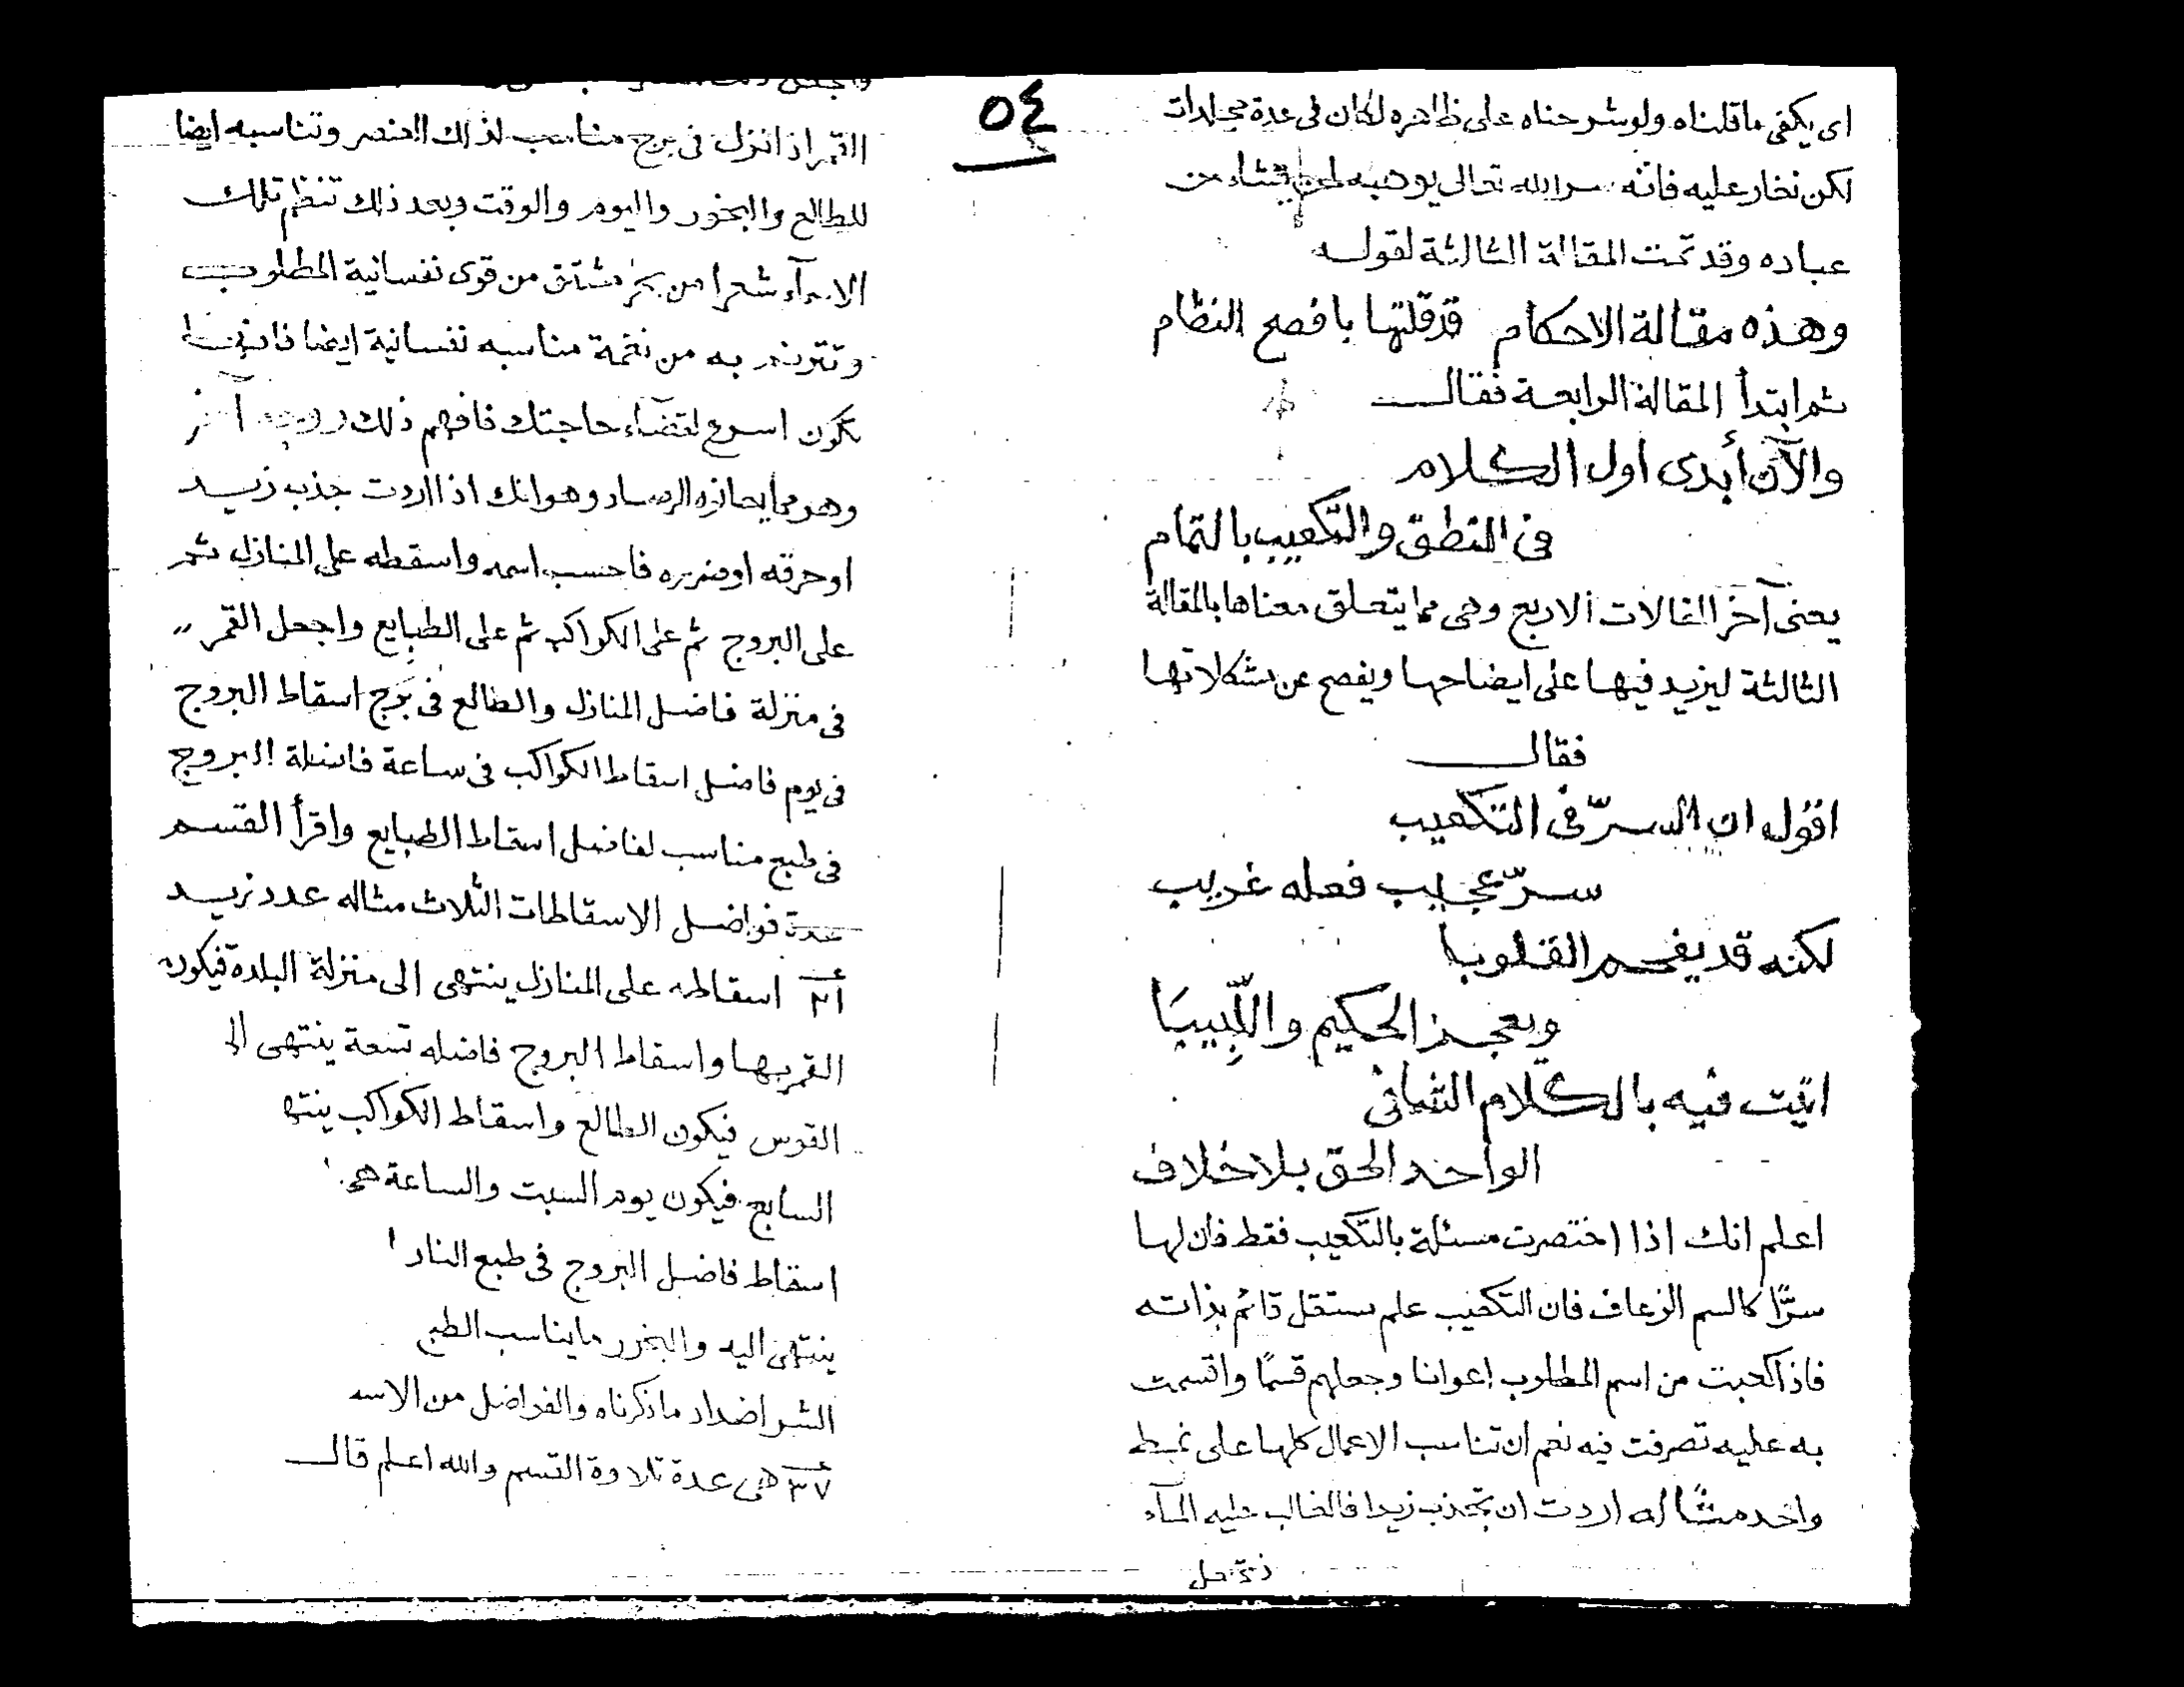 اى يكفى ما قلناه ولو شرحناه على ظاهره لكان فى عدة مجلدات
لكن نغار عليه فانه سر الله تعالى يوهبه لمن يشاء من
عباده وقد تمت المقالة الثالثة لقوله
وهذه مقالة الاحكام قد قلتها بافصح النظام
ثم ابتدأ المقالة الرابعة فقال
والآن أبدى اول الكلام
فى النطق والتكعيب بالتمام
يعنى آخر المقالات الاربع وهى مما يتعلق معناها بالمقالة
الثالثة ليزيد فيها على ايضاحها ويفصح عن مشكلاتها
فقال
اقول ان السرّ فى التكعيب
سرّ عجيب فعله غريب
لكنه قد يفحم القلوبا
ويعجز الحكيم واللّبيبَا
اتيت فيه بالكلام الشافى
الواحد الحق بلا خلاف
اعلم انك اذا اختصرت مسئلة بالتكعيب فقط فان لها
سرًّا كالسم الزعاف فان التكعيب علم مستقل قائم بذاته
فاذا كعبت من اسم المطلوب اعوانا وجعلهم قسمًا واقسمت
به عليه تصرفت فيه نعم ان تناسب الاعمال كلها على نمط
واحد مثاله اردت ان تجذب زيدا فالغالب عليه المآء
٥٤
القمر اذا نزل فى برج مناسب لذلك العنصر وتناسبه ايضا
للطالع والبخور واليوم والوقت وبعد ذلك تنظم تلك
الاسمآء شعرا من بحر مشتق من قوى نفسانية المطلوب
وتترنم به من نغمة مناسبه نفسانية ايضا فانه
يكون اسرع لقضاء حاجتك فافهم ذلك ووجه آخر
وهو مما يحاذره الرصاد وهو انك اذا اردت جذب زيد
او حرقه او ضرره فاحسب اسمه واسقطه على المنازل ثم
على البروج ثم على الكواكب ثم على الطبايع واجعل القمر
فى منزلة فاضل المنازل والطالع فى برج اسقاط البروج
فى يوم فاضل اسقاط الكواكب فى ساعة فاضلة البروج
فى طبع مناسب لفاضل اسقاط الطبايع واقرأ القسم
عدة فواضل الاسقاطات الثلاث مثاله عدد زيد
٢١ اسقاطه على المنازل ينتهى الى منزلة البلدة فيكون
القمر بها واسقاط البروج فاضله تسعة ينتهى الى
القوس فيكون الطالع واسقاط الكواكب
السابع فيكون يوم السبت والساعة هى
اسقاط فاضل البروج فى طبع النار
ينتهى اليه والبخور ما يناسب
الشر اضداد ما ذكرناه والفواضل من
٣٧ هى عدة تلاوة القسم والله اعلم قال